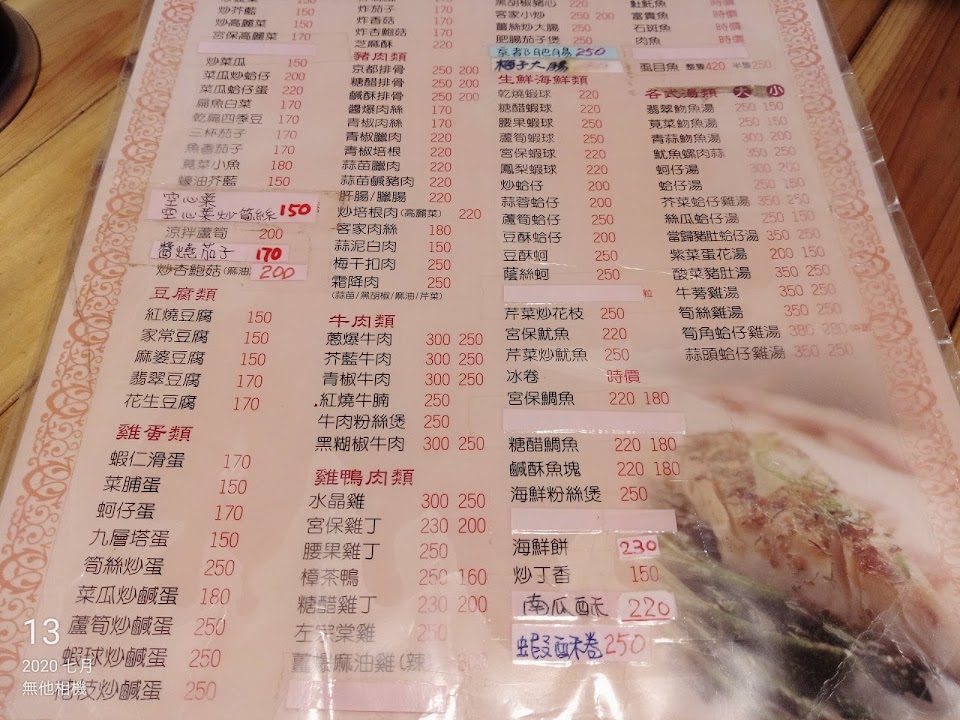 炒芥藍 150
炒高麗菜 150
宮保高麗菜 170
炒菜瓜 150
菜瓜炒蛤仔 200
菜瓜蛤仔蛋 220
扁魚白菜 170
乾扁四季豆 170
三杯茄子 170
魚香茄子 170
莧菜小魚 180
蠔油芥藍 150
空心菜
空心菜炒筍絲 150
涼拌蘆筍 200
醬燒茄子 170
炒杏鮑菇(麻油) 200
豆腐類
紅燒豆腐 150
家常豆腐 150
麻婆豆腐 150
翡翠豆腐 170
花生豆腐 170
雞蛋類
蝦仁滑蛋 170
菜脯蛋 150
蚵仔蛋 170
九層塔蛋 150
筍絲炒蛋 250
菜瓜炒鹹蛋 180
蘆筍炒鹹蛋 250
蝦球炒鹹蛋 250
炒鹹蛋 250
炸茄子 170
炸香菇 170
炸杏鮑菇 170
芝麻酥 220
豬肉類
京都排骨 250 200
糖醋排骨 250 200
鹹酥排骨 250 200
醬爆肉絲 170
青椒肉絲 170
青椒臘肉 220
青椒培根 220
蒜苗臘肉 220
蒜苗鹹豬肉 220
肝腸/臘腸 220
炒培根肉(高麗菜) 220
客家肉絲 180
蒜泥白肉 150
梅干扣肉 250
霜降肉 250
(蒜苗/黑胡椒/麻油/芹菜)
牛肉類
蔥爆牛肉 300 250
芥藍牛肉 300 250
青椒牛肉 300 250
紅燒牛腩 250
牛肉粉絲煲 250
黑糊椒牛肉 300 250
雞鴨肉類
水晶雞 300 250
宮保雞丁 230 200
腰果雞丁 250
樟茶鴨 250 160
糖醋雞丁 230 200
左宗棠雞 250
麻油雞(辣)
黑胡椒豬心 220
客家小炒 250 200
薑絲炒大腸 250
肥腸茄子煲 250
京都肥腸 250
梅子大腸
生鮮海鮮類
乾燒蝦球 220
糖醋蝦球 220
腰果蝦球 250
蘆筍蝦球 250
宮保蝦球 220
鳳梨蝦球 220
炒蛤仔 200
蒜蓉蛤仔 220
蘆筍蛤仔 250
豆酥蛤仔 220
豆酥蚵 250
薑絲蚵 250
粒
芹菜炒花枝 250
宮保魷魚 220
芹菜炒魷魚 250
冰卷 時價
宮保鯛魚 220 180
糖醋鯛魚 220 180
鹹酥魚塊 220 180
海鮮粉絲煲 250
海鮮餅 230
炒丁香 150
南瓜酥 220
蝦酥卷 250
魠魠魚 時價
富貴魚 時價
石斑魚 時價
肉魚 時價
虱目魚 整隻420 半隻250
各式湯類 大 小
翡翠魩魚湯 250 150
莧菜魩魚湯 250 150
青蒜魩魚湯 300 200
魷魚螺肉蒜 350 250
蚵仔湯 300 200
蛤仔湯 250 150
芥菜蛤仔雞湯 350 250
絲瓜蛤仔湯 250 150
當歸豬肚蛤仔湯 350 250
紫菜蛋花湯 200 150
酸菜豬肚湯 350 250
牛蒡雞湯 350 250
筍絲雞湯 350 250
筍角蛤仔雞湯 380 280
蒜頭蛤仔雞湯 350 250
13
2020 七月
無他相機